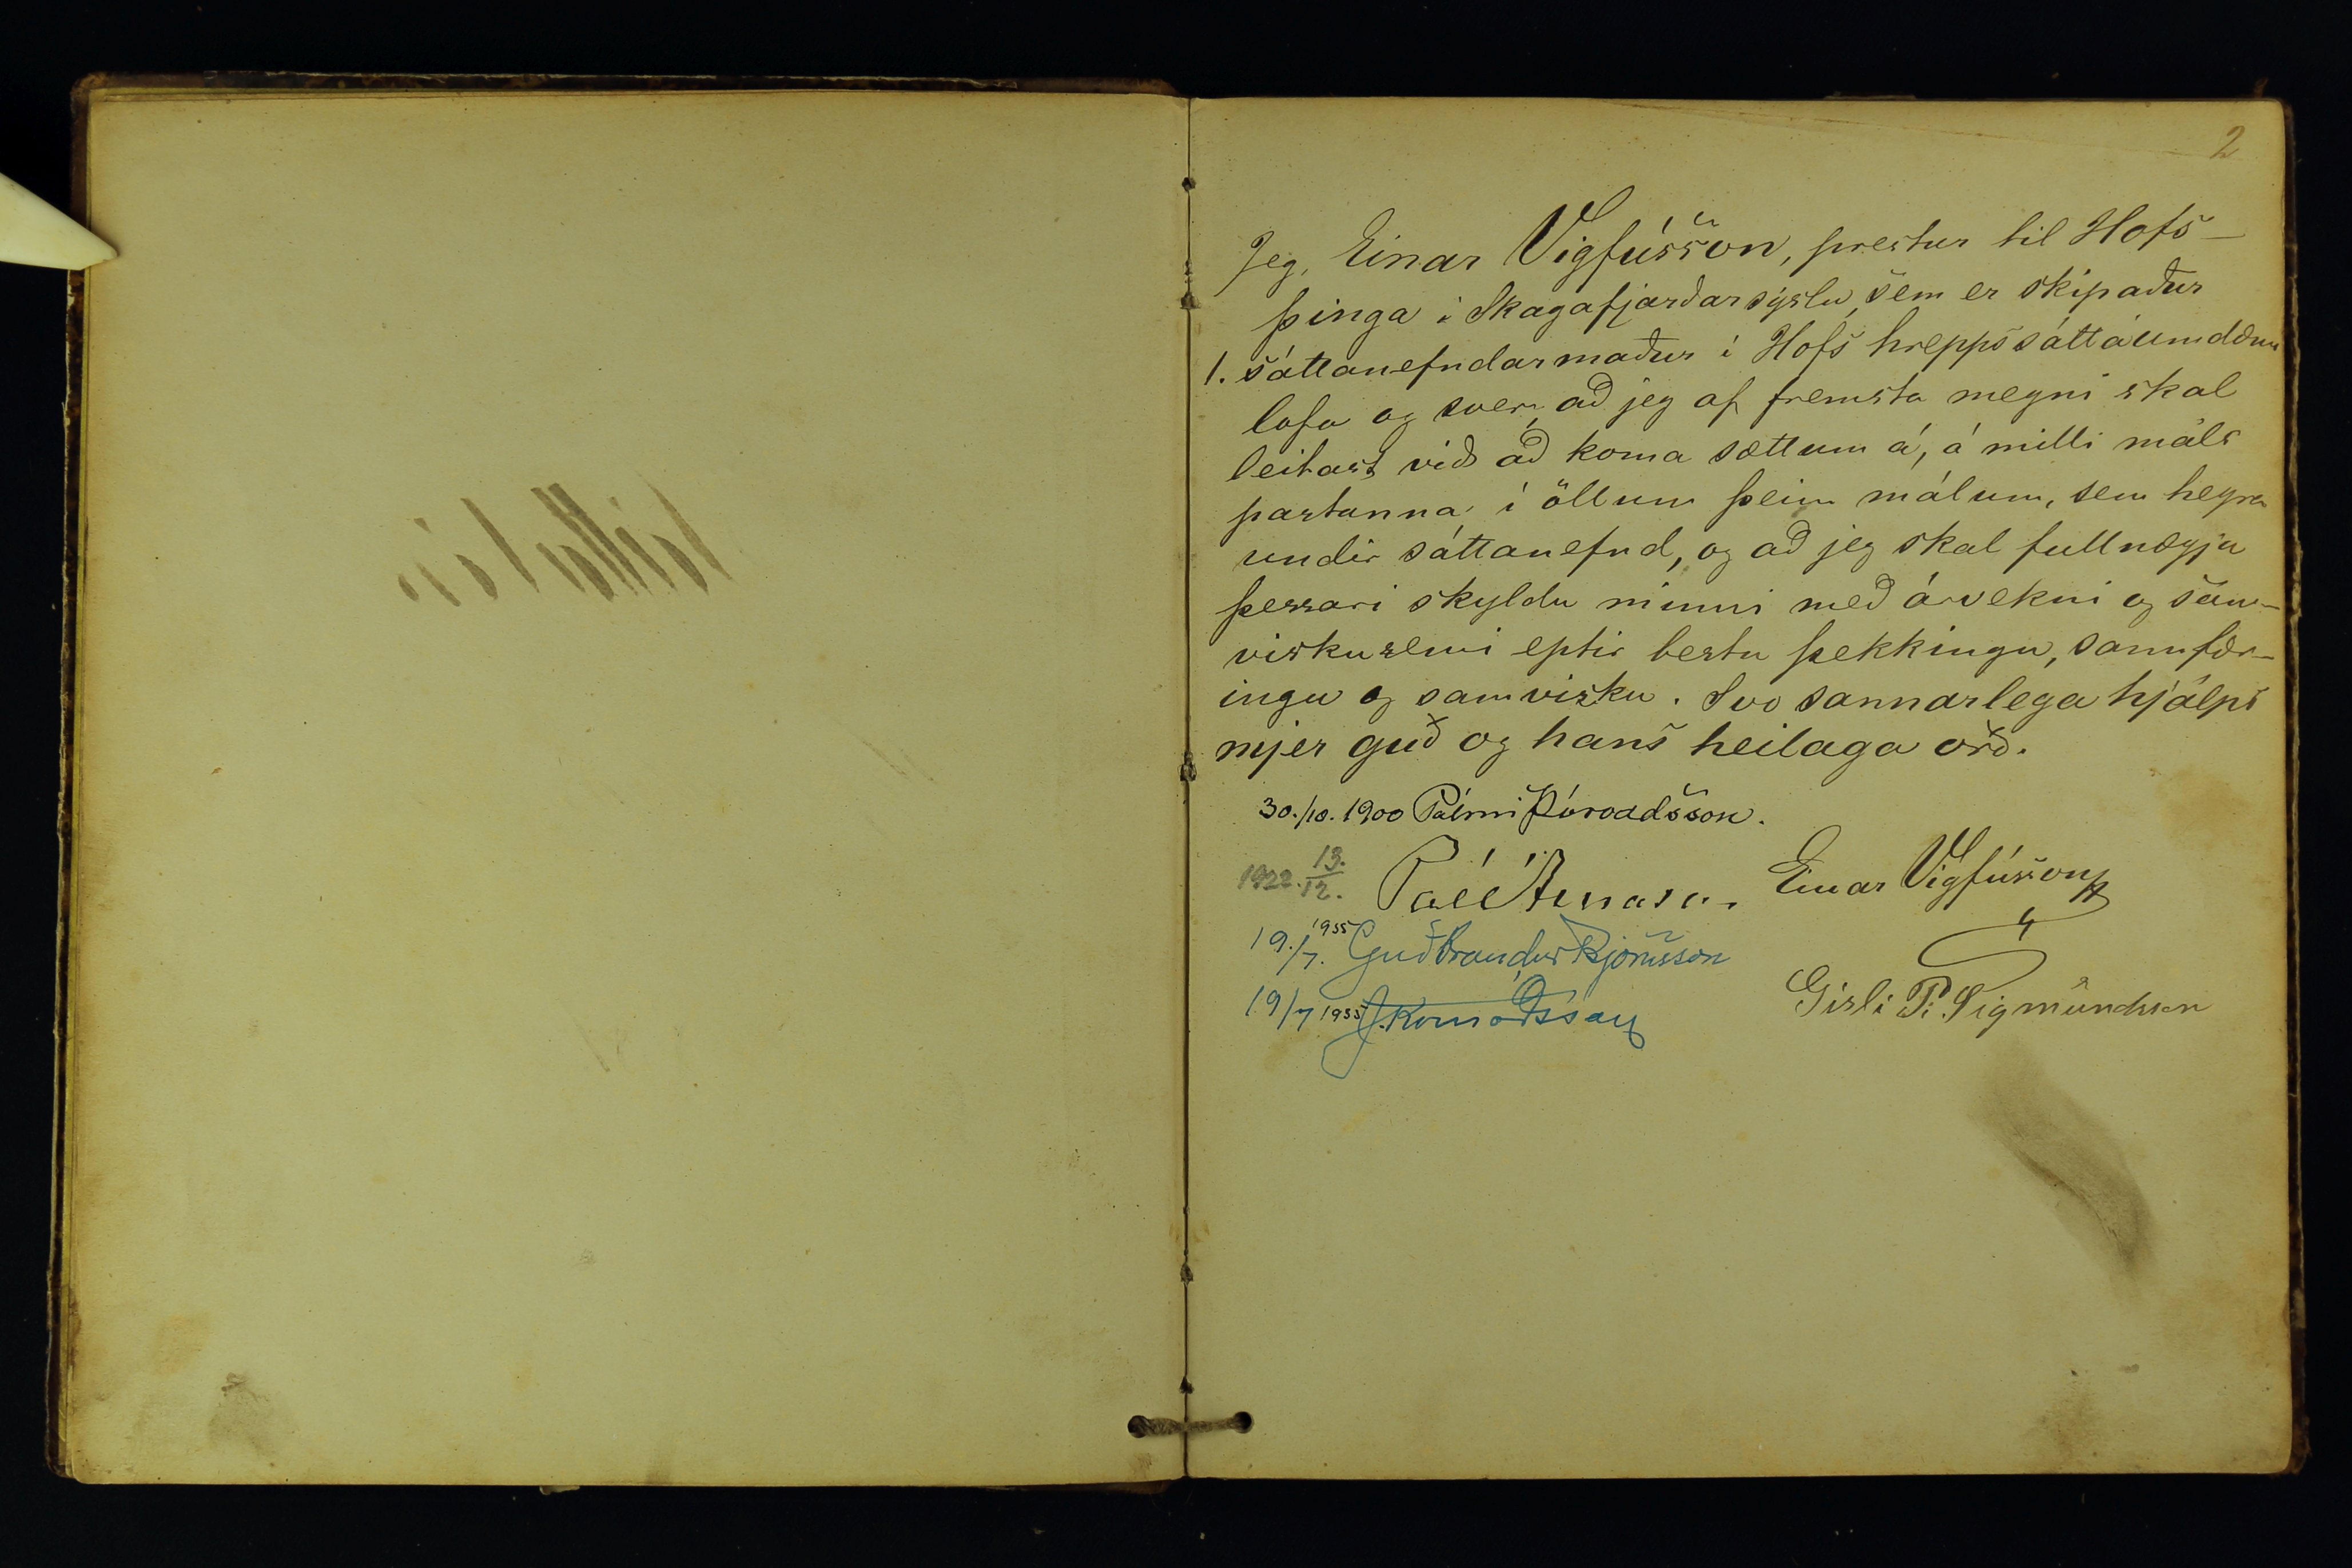 2
Jeg, Einar Vigfússon, prestur til Hofs-
þinga i Skagafjarðarsýslu, sem er skipaður
1. sáttanefndarmaður í Hofshreppssáttaumdæmi
lofa og sver, að jeg af fremsta megni skal
leitast við að koma sættum á, á milli máls
partanna í öllum þeim málum, sem heyra
undir sáttanefnd, og að jeg skal fullnægja
þessari skyldu minni með árvekni og sam-
viskusemi eptir bestu þekkingu, sannfær-
ingu og samvisku. Svo sannarlega hjálpi
mjer guð og hans heilaga orð.
30./10. 1900 Pálmi Þóroddsson.
Einar Vigfússon
1922. 13./12. Páll Árnason
19./7. 1955 Guðbrandur Björnsson
19/7 1955
Gísli P. Sigmundsson